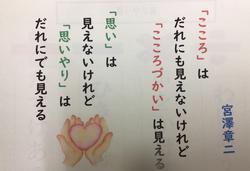 「こころ」は
だれにも見えないけれど
「こころづかい」は見える
「思い」は
見えないけれど
「思いやり」は
だれにでも見える
宮澤章二